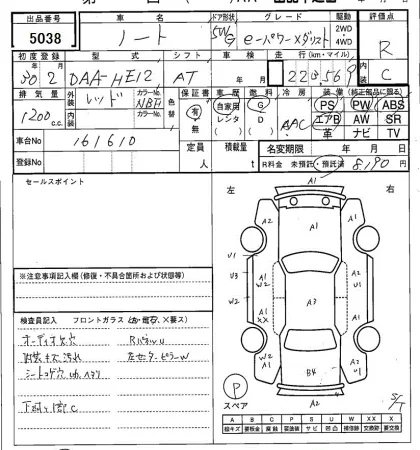 出品番号 車名 ドア形状 グレード 駆動 評価点
5038 ノート 5W G e-パワーXダリスト 2WD・4WD R
初度登録 型式 シフト 車検 走行(km・マイル) 内装
30年2月 DAA-HE12 AT 年 月 22,569 C
排気量 外装 カラーNo. 色替 保証書 車歴 燃料 冷房 装備 (純正部品に限る)
1200 c.c. レッド NBF 有・無 自家用 レンタ G D AAC PS PW ABS
内装 カラーNo. エアB AW SR
革 ナビ TV
車台No 161610 定員 人 積載量 t 名変期限 年 月 日
登録No. R料金 未預託・預託済 8,190 円
セールスポイント
左 右
A1
A2 A2
U1
U3
W2
A1
W2
A3
A1
XX
W2
A1
B4
A2
※注意事項記入欄(修復・不具合箇所および状態等)
検査員記入 フロントガラス
オーディオ欠穴 RパネルU
内装キズ汚れ 左センターピラーW
下廻り間C
P
スペア
S/T
A B C P S U W XX X
線キズ 要板金 腐蝕 要塗装 サビ 凹凸 補修跡 交換跡 要交換